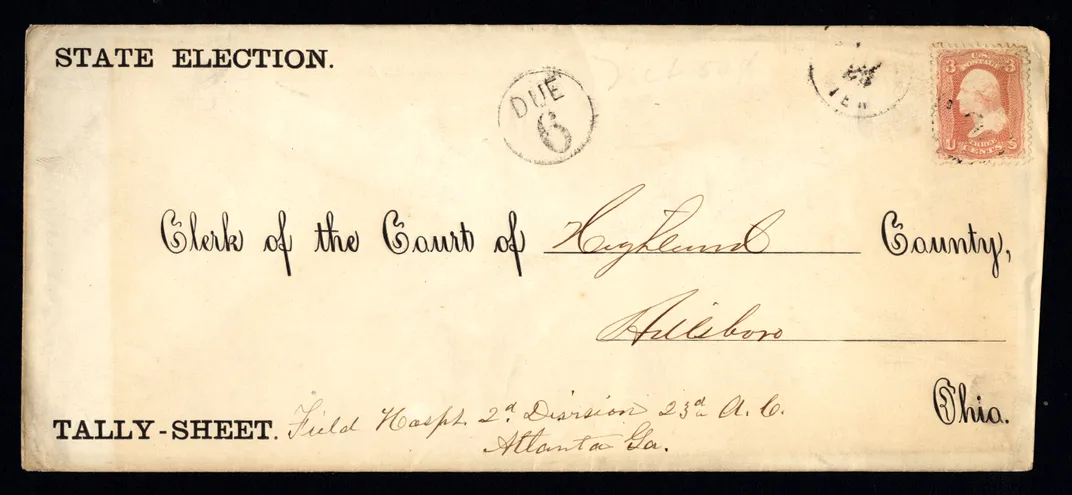 STATE ELECTION.
DUE
6
3 3
U S
CENTS
Clerk of the Court of Highland County,
Hillsboro
Ohio.
TALLY-SHEET. Field Hospt. 2d Division 23d A. C.
Atlanta Ga.